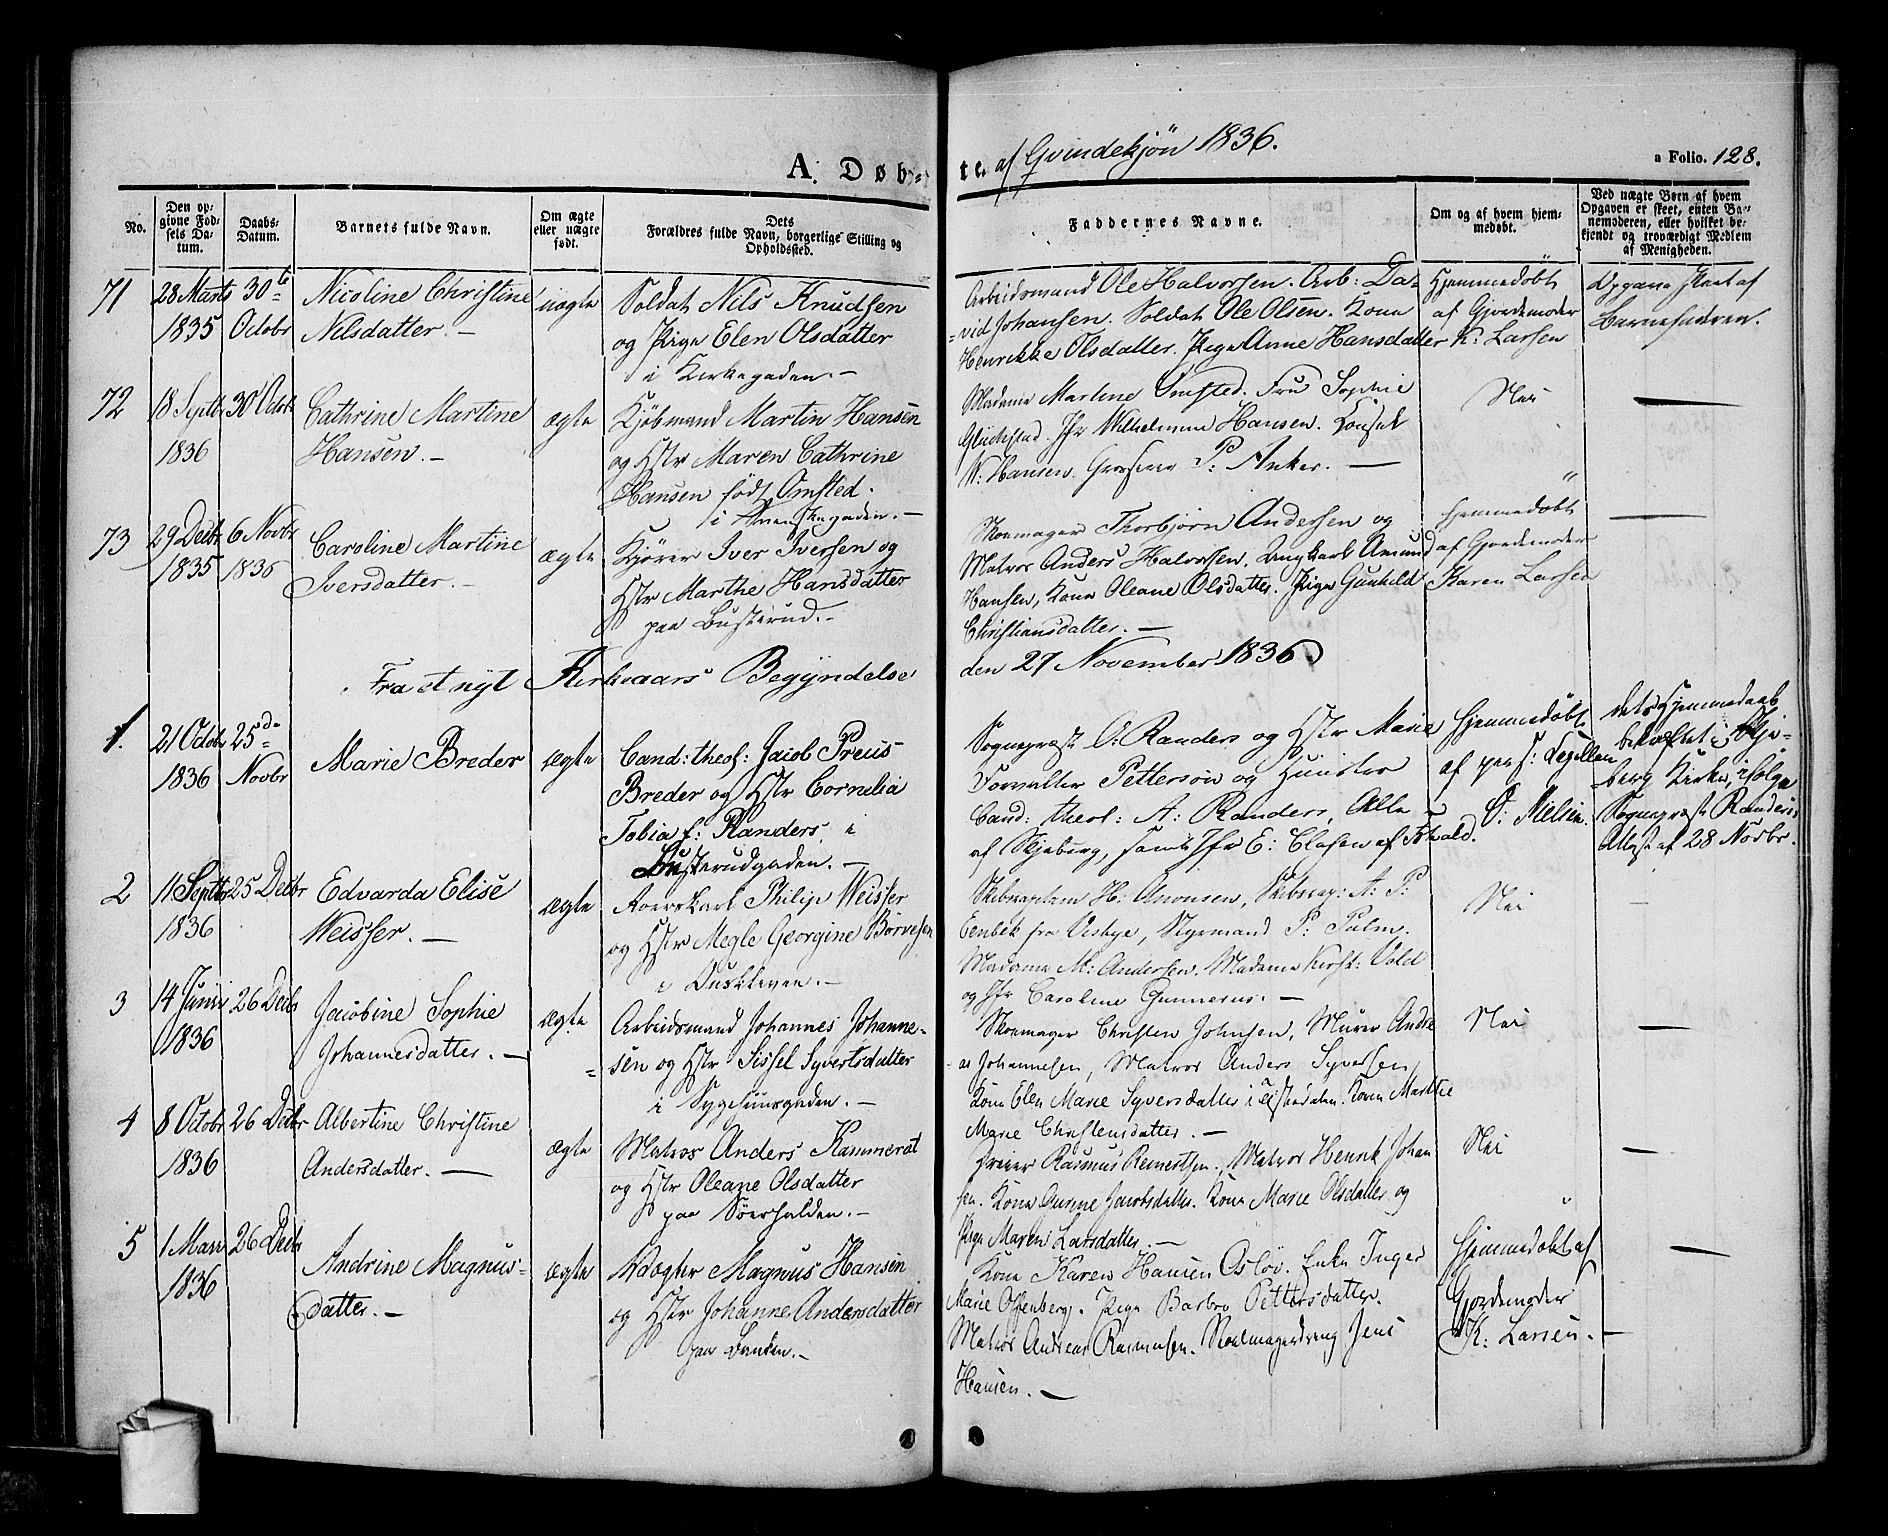 A. Døbte. af Qvindekjön 1836.
a Folio. 128.
No.
Den opgivne Fødsels Datum.
Daabs-Datum.
Barnets fulde Navn.
Om ægte eller uægte født.
Dets Forældres fulde Navn, borgerlige Stilling og Opholdssted.
Faddernes Navne.
Om og af hvem hjemmedøbt.
Ved uægte Børn af hvem Opgaven er skeet, enten Barnemoderen, eller hvilket bekjendt og troværdigt Medlem af Menigheden.
71
28 Marts 1835
30t Octobr
Nicoline Christine
Nilsdatter. —
uægte
Soldat Nils Knudsen
og Pige Elen Olsdatter
i Kirkegaden. —
Arbeidsmand Ole Halvorsen. Arb: Da-
-vid Johansen. Soldat Ole Olsen. Kona
Henrikke Olsdatter. Pige Anne Hansdatter
Hjemmedöbt
af Gjordemoder
K: Larsen
Opgave skeet af
Barnefaderen.
72
18 Septbr 1836
30 Octob
Cathrine Martine
Hansen. —
ægte
Kjöbmand Martin Hansen
og Hstr Maren Cathrine
Hansen födt Omsted.
i Svenskegaden. —
Madame Martine Omsted. Fru Sophie
Glückstad. Jfr Wilhelmine Hansen. Consul
W: Hansen. P: Anker. —
Nei
73
29 Decbr 1835
6 Novbr 1836
Caroline Martine
Iversdatter. —
ægte
Kjörer Iver Iversen og
Hstr Marthe Hansdatter
paa Busterud. —
Skomager Thorbjörn Andersen og
Matros Anders Halvorsen. Ungkarl Amund
Hansen, Kona Oleane Olsdatter. Pige Gunhild
Christiansdatter. —
Hjemmedöbt
af Gjordemoder
Karen Larsen
Fra et nyt Kirkeaars Begyndelse den 27 November 1836
1.
21 Octobr 1836
25de Novbr
Marie Breder
ægte
Cand: theol: Jacob Preus
Breder og Hstr Cornelia
Tobia f: Randers i
Busterudgaden. —
Sognepræst O: Randers og Hstr Marie
Forvalter Petterson og Hustro
Cand: theol: A: Randers, Alle
af Skjeberg, samt Jfr E: Clasen af
Hjemmedöbt
af pers:
O: Nielsen.
dets Hjemmedaab
bekræftet i Skje-
berg Kirke, ifölge
Sognepræst Randers's
Attest af 28 Novbr.
2
11 Septbr 1836
25 Decbr
Edvarda Elise
Weisser. —
ægte
Philip Weisser
og Hstr Megle Georgine Börresen
i —
Skibscaptain H: Amonsen, Skibscap: A: P:
Eenbek fra Visbye, Styrmand P: Palm.
Madame M: Andersen. Madame Kirst: Vold
og Jfr Caroline Gunnerus. —
Nei
3
14 Juni 1836
26 Decbr
Jacobine Sophie
Johannesdatter. —
ægte
Arbeidsmand Johannes Johanne-
-sen og Hstr Sissel Syvertsdatter
i Sygehuusgaden. —
Skomager Christen Johnsen, Murer Andre
as Johannesen, Matros Anders Syversen,
Kona Elen Marie Syversdatter i Tistedalen. Kona Marthe
Marie Christensdatter. —
Nei
4
8 Octobr 1836
26 Decbr
Albertine Christine
Andersdatter. —
ægte
Matros Anders Kammerat
og Hstr Oleane Olsdatter
paa Söerhalden. —
Dreier Rasmus Reinertsen, Matros Henrik Johan
sen. Kona Gurine Jacobsdatter. Kona Marie Olsdatter og
Pige Maren Larsdatter. —
Nei
5
1 Mars 1836
26 Decbr
Andrine Magnus-
datter. —
ægte
Vægter Magnus Hansen
og Hstr Johanne Andersdatter
paa Banken. —
Kona Karen Hansen Oslöv. Enke Inger
Marie Offenberg. Pige Barbro Pettersdatter.
Matros Andreas Rasmusen. Jens
Hansen. —
Hjemmedöbt af
Gjordemoder
K: Larsen. —